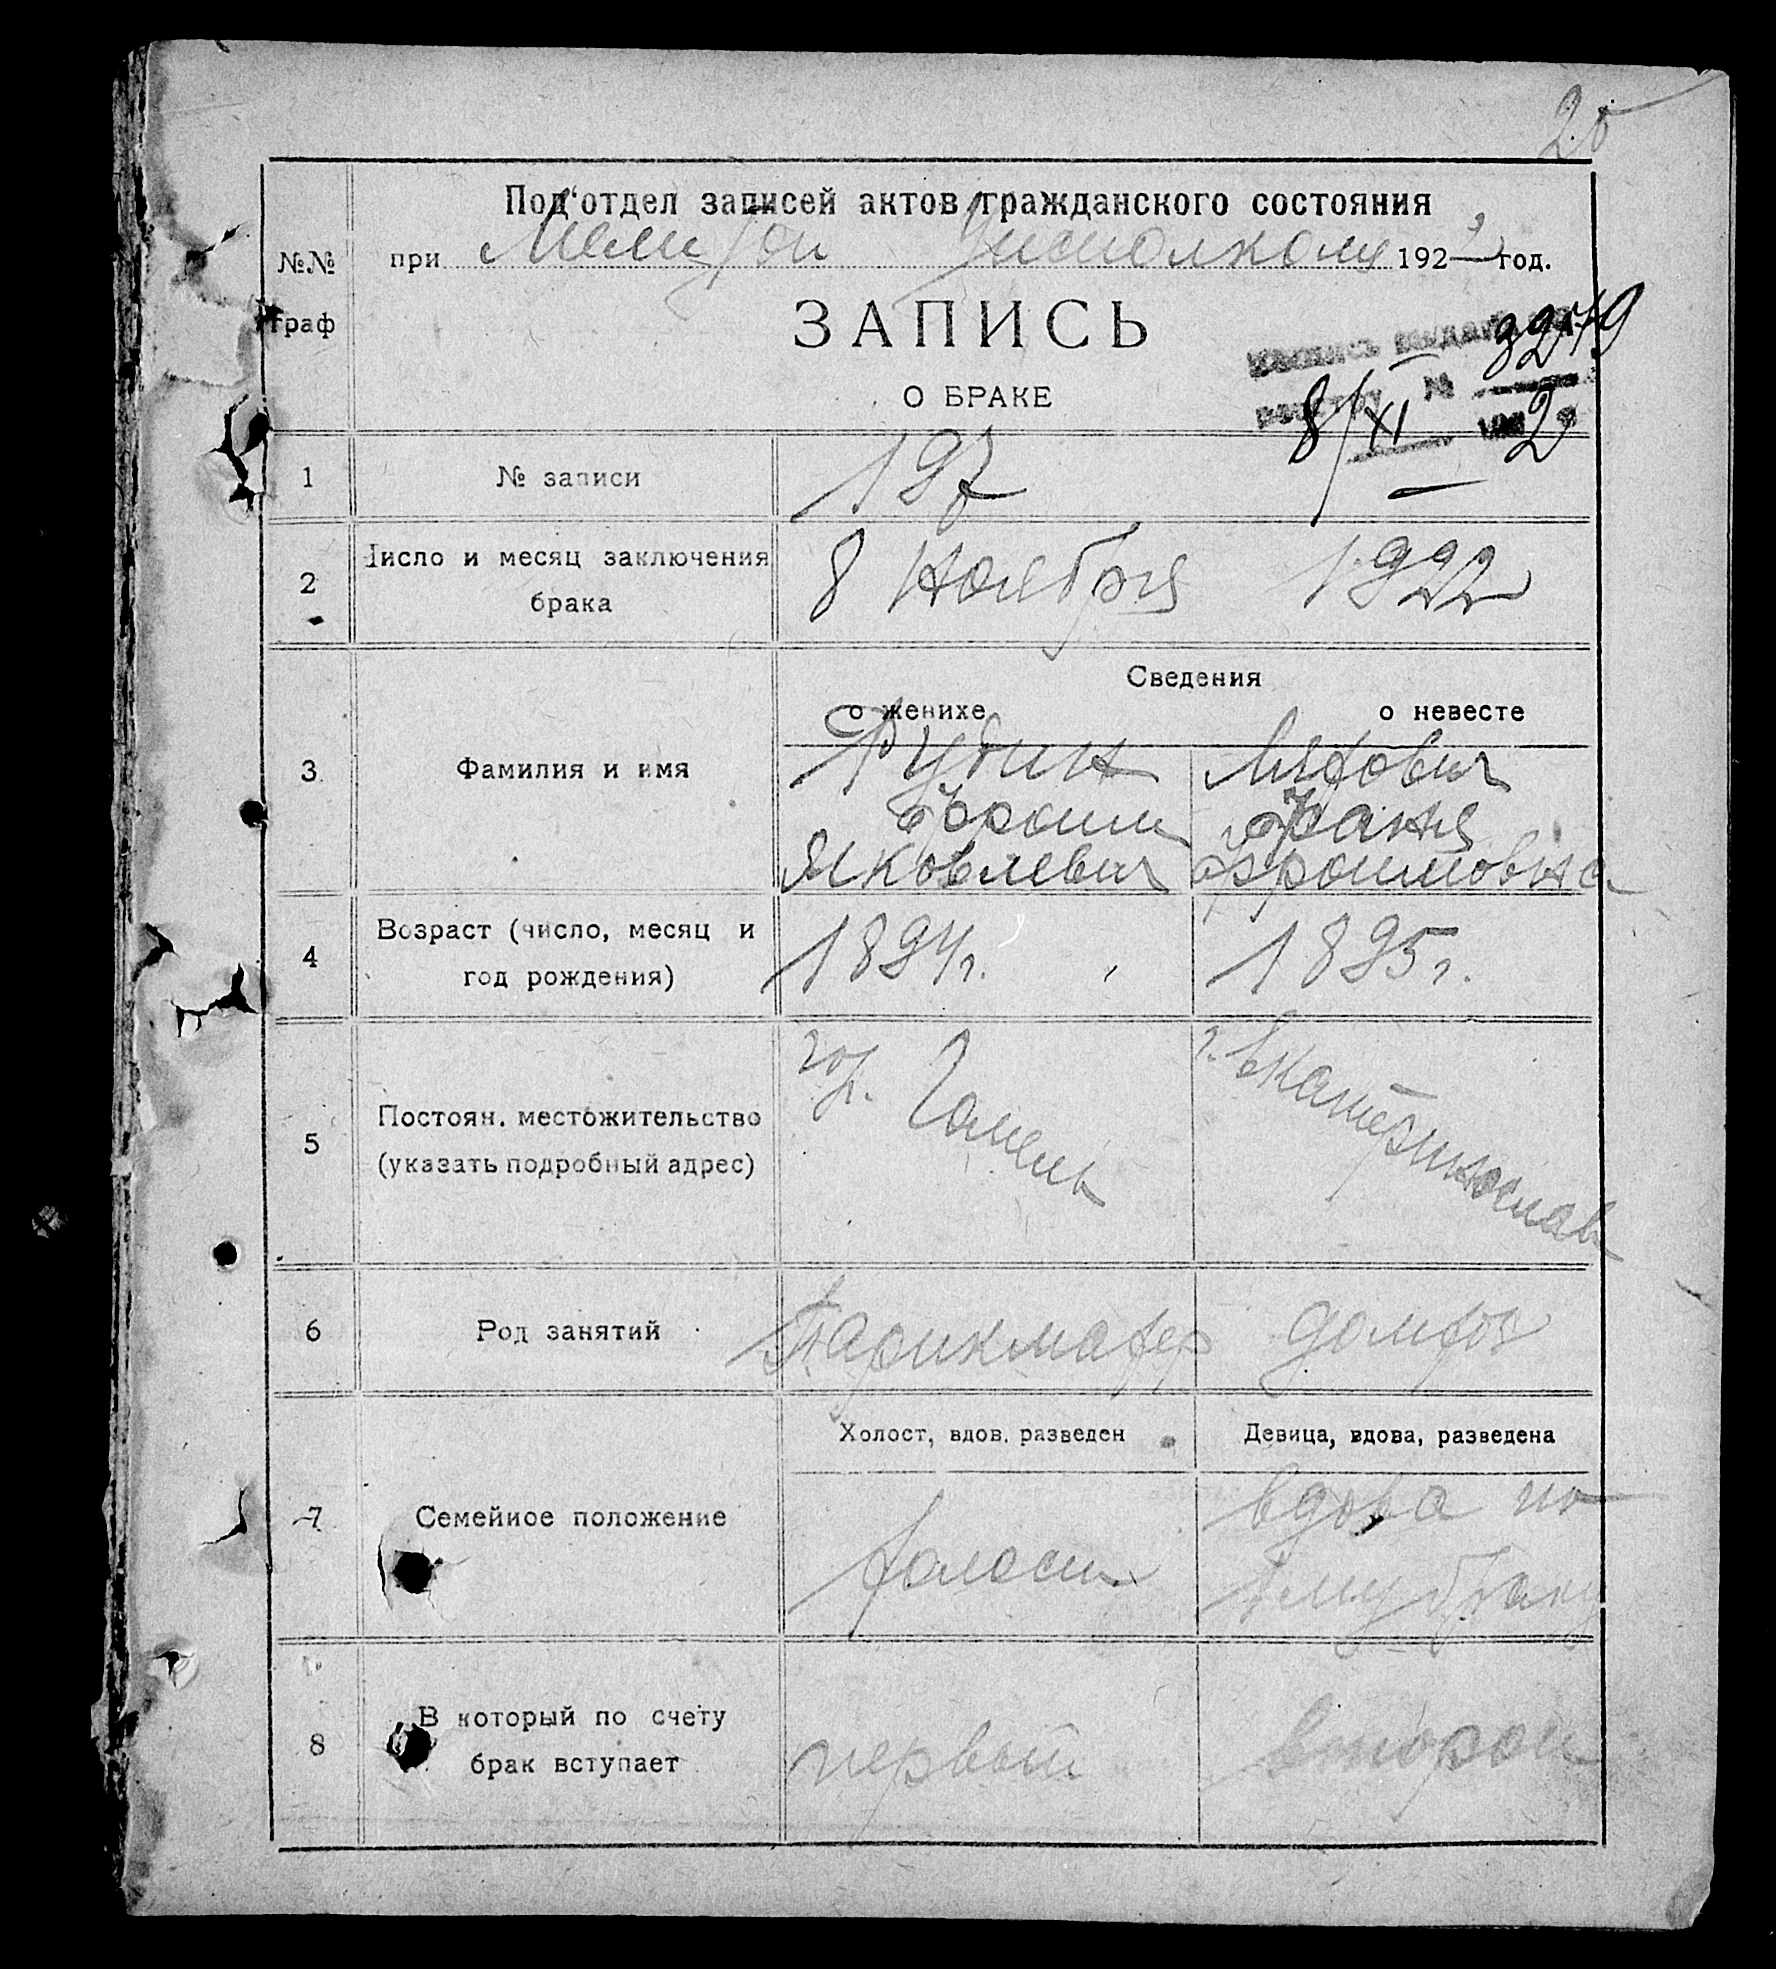 20
Под'отдел записей актов гражданского состояния
№№ при Мели Исполкому 1922 год.
граф
ЗАПИСЬ
О БРАКЕ
8/XI 2
1 № записи 197
2 Число и месяц заключения 8 Ноября 1922
брака
Сведения
о женихе о невесте
3 Фамилия и имя Рубин Ляхович
Эфроим Фаня
Яковлевич Эфроимовна
4 Возраст (число, месяц и 1894г. 1895г.
год рождения)
5 Постоян. местожительство гор. Гомель г. Екатеринослав
(указать подробный адрес)
6 Род занятий Парикмахер домхоз
Холост, вдов, разведен Девица, вдова, разведена
7 Семейное положение холост вдова по
1му браку
8 В который по счету первый второй
брак вступает